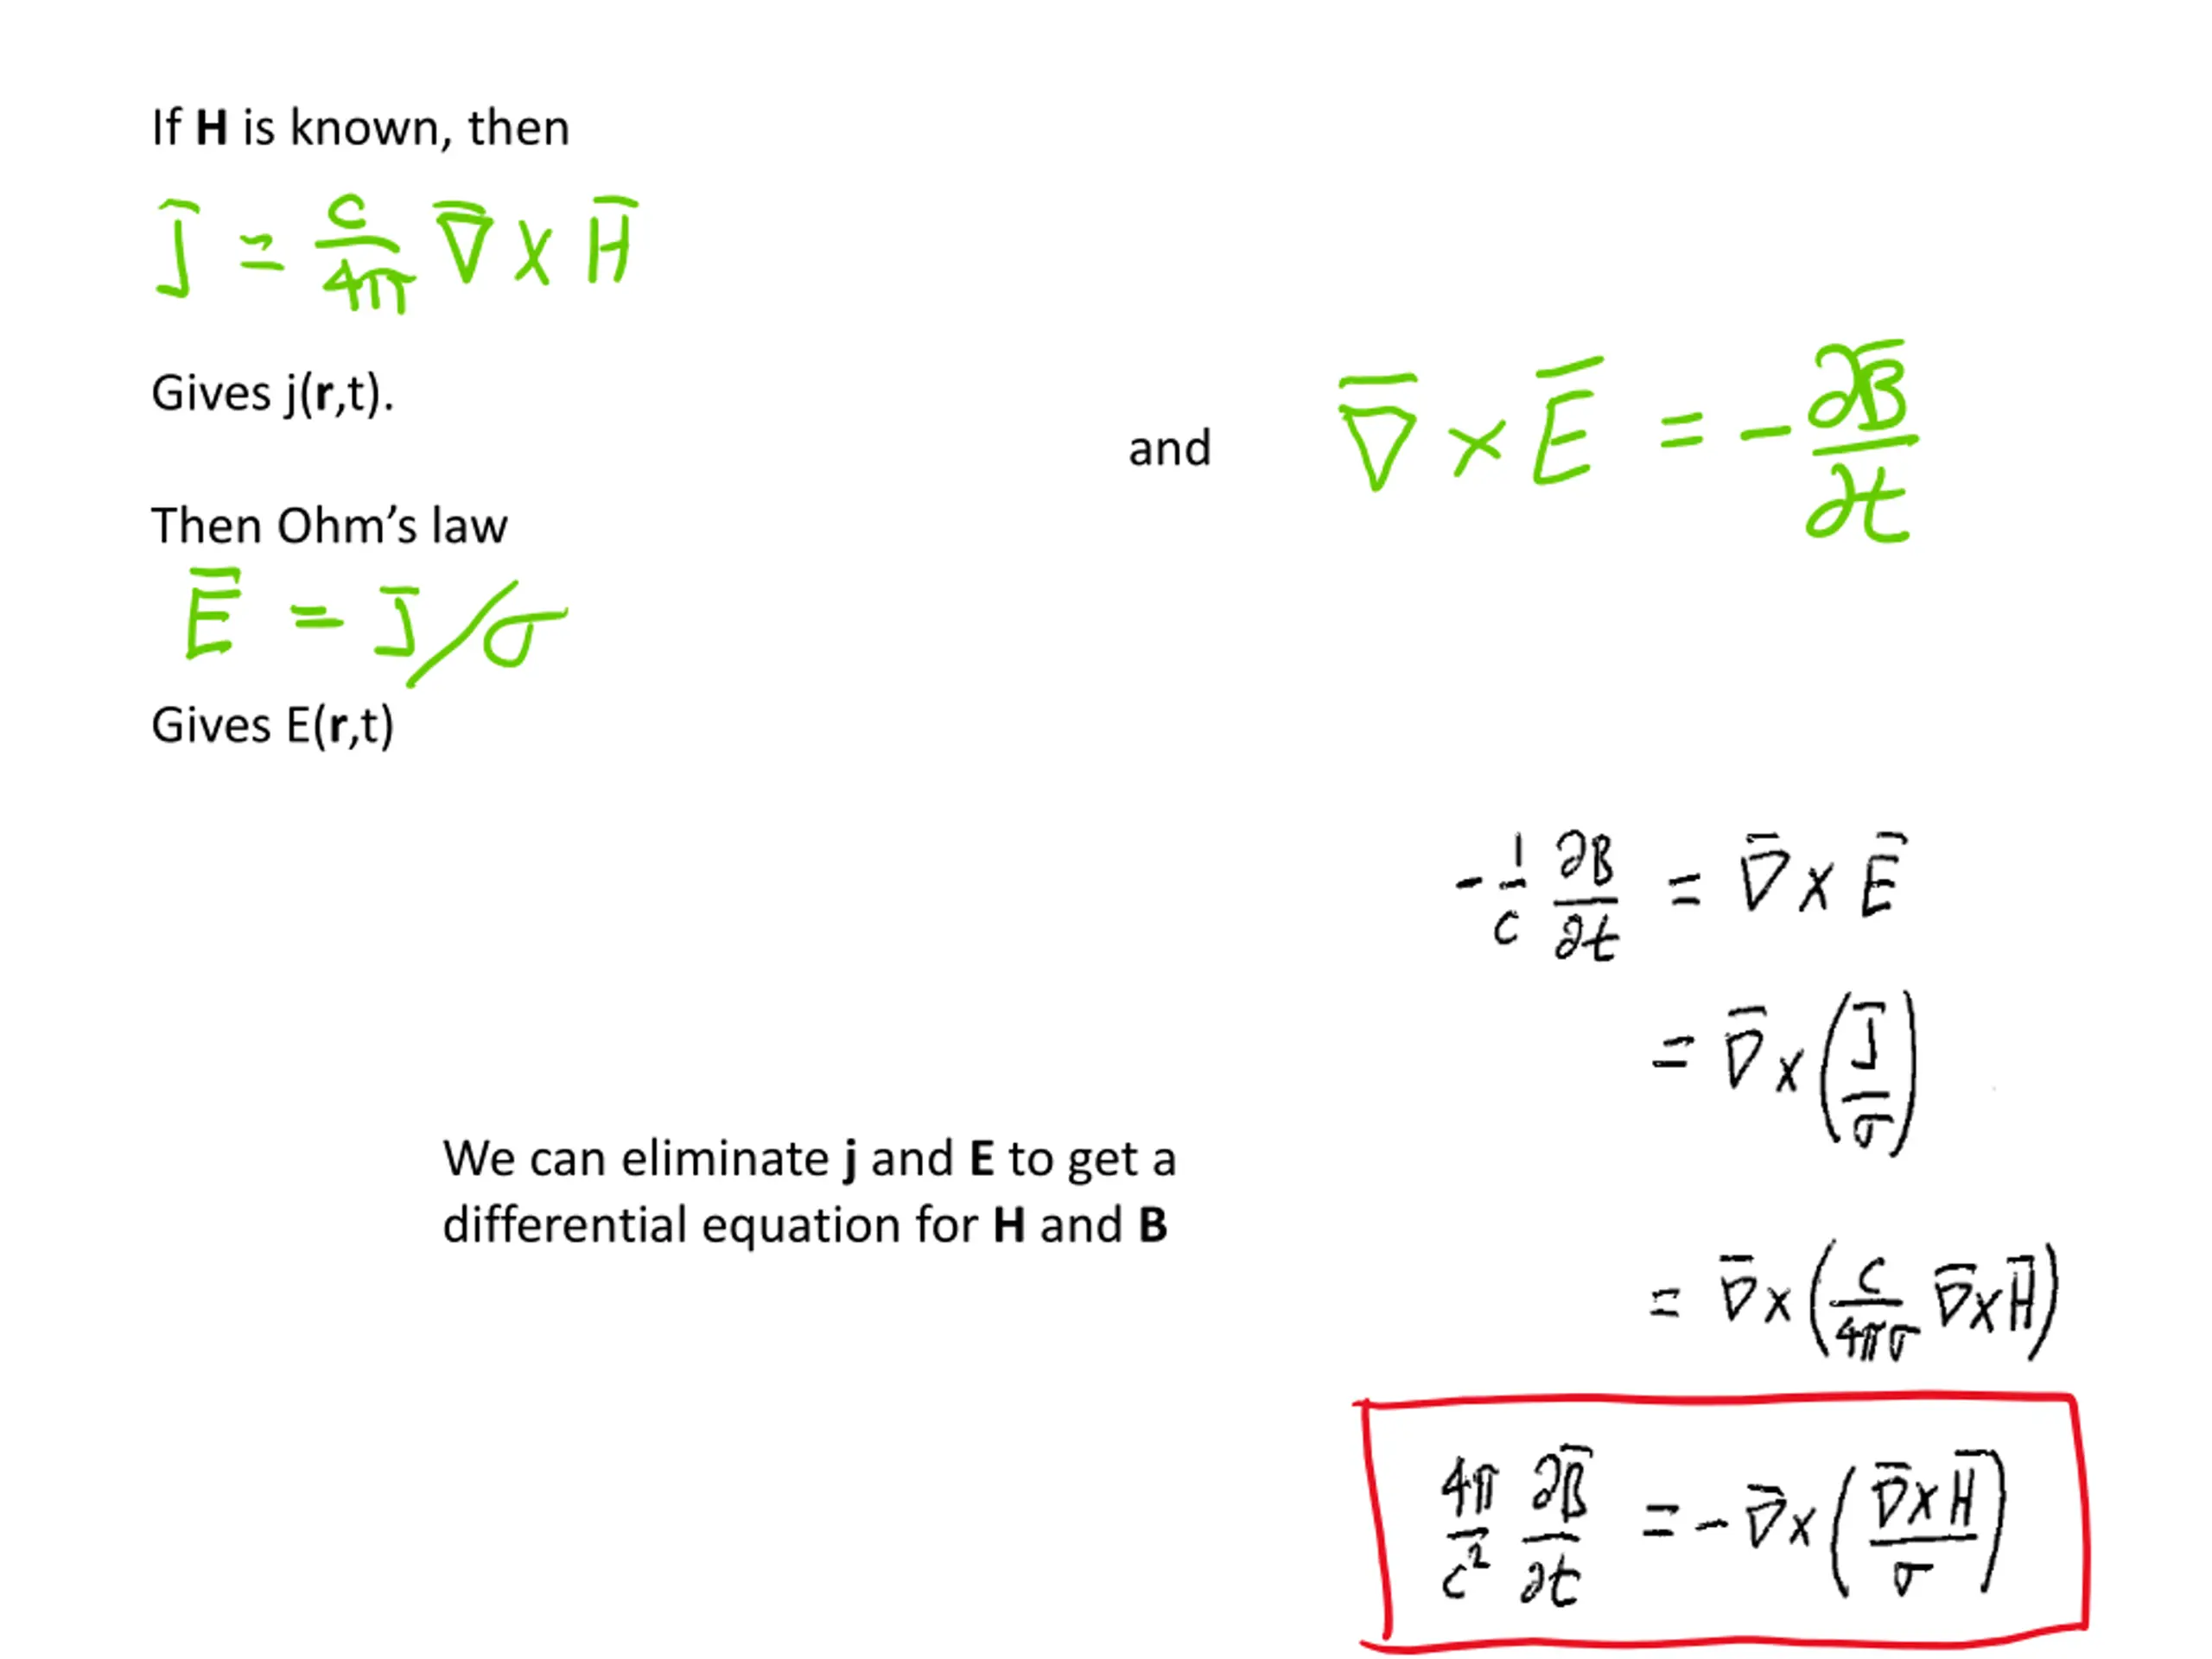 If H is known, then
J̄ = c/4π ∇̄ × H̄
Gives j(r,t).
and ∇̄ × Ē = - ∂B̄/∂t
Then Ohm’s law
Ē = J̄/σ
Gives E(r,t)
- 1/c ∂B/∂t = ∇̄ × Ē
= ∇̄ × (J̄/σ)
We can eliminate j and E to get a
differential equation for H and B
= ∇̄ × (c/4πσ ∇̄ × H̄)
4π/c² ∂B̄/∂t = - ∇̄ × (∇̄ × H̄/σ)